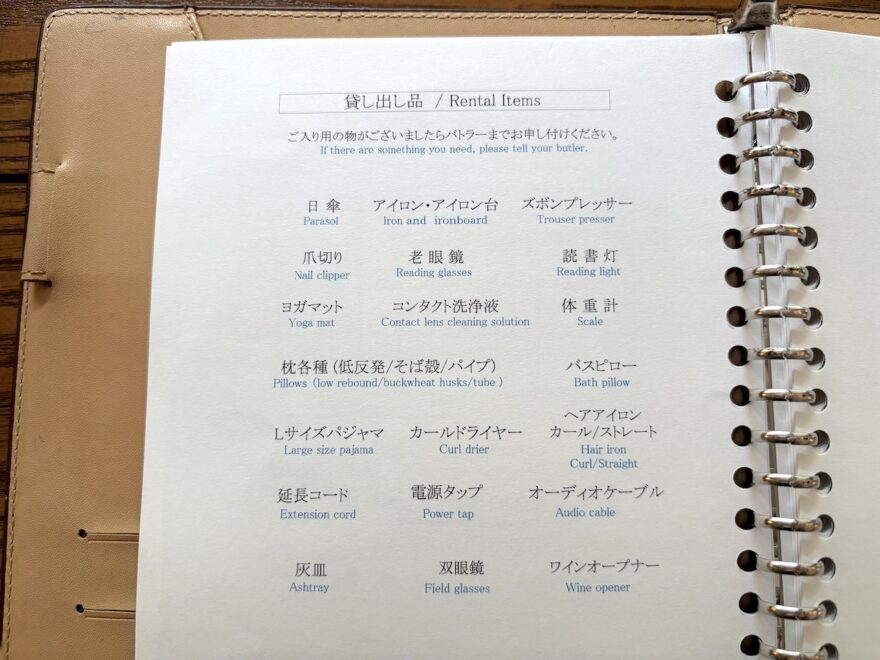 貸し出し品 / Rental Items
ご入り用の物がございましたらバトラーまでお申し付けください。
If there are something you need, please tell your butler.
日 傘 アイロン・アイロン台 ズボンプレッサー
Parasol Iron and ironboard Trouser presser
爪切り 老 眼 鏡 読 書 灯
Nail clipper Reading glasses Reading light
ヨガマット コンタクト洗浄液 体 重 計
Yoga mat Contact lens cleaning solution Scale
枕各種（低反発/そば殻/パイプ） バスピロー
Pillows（low rebound/buckwheat husks/tube） Bath pillow
ヘアアイロン
Lサイズパジャマ カールドライヤー カール/ストレート
Large size pajama Curl drier Hair iron
Curl/Straight
延長コード 電源タップ オーディオケーブル
Extension cord Power tap Audio cable
灰皿 双眼鏡 ワインオープナー
Ashtray Field glasses Wine opener